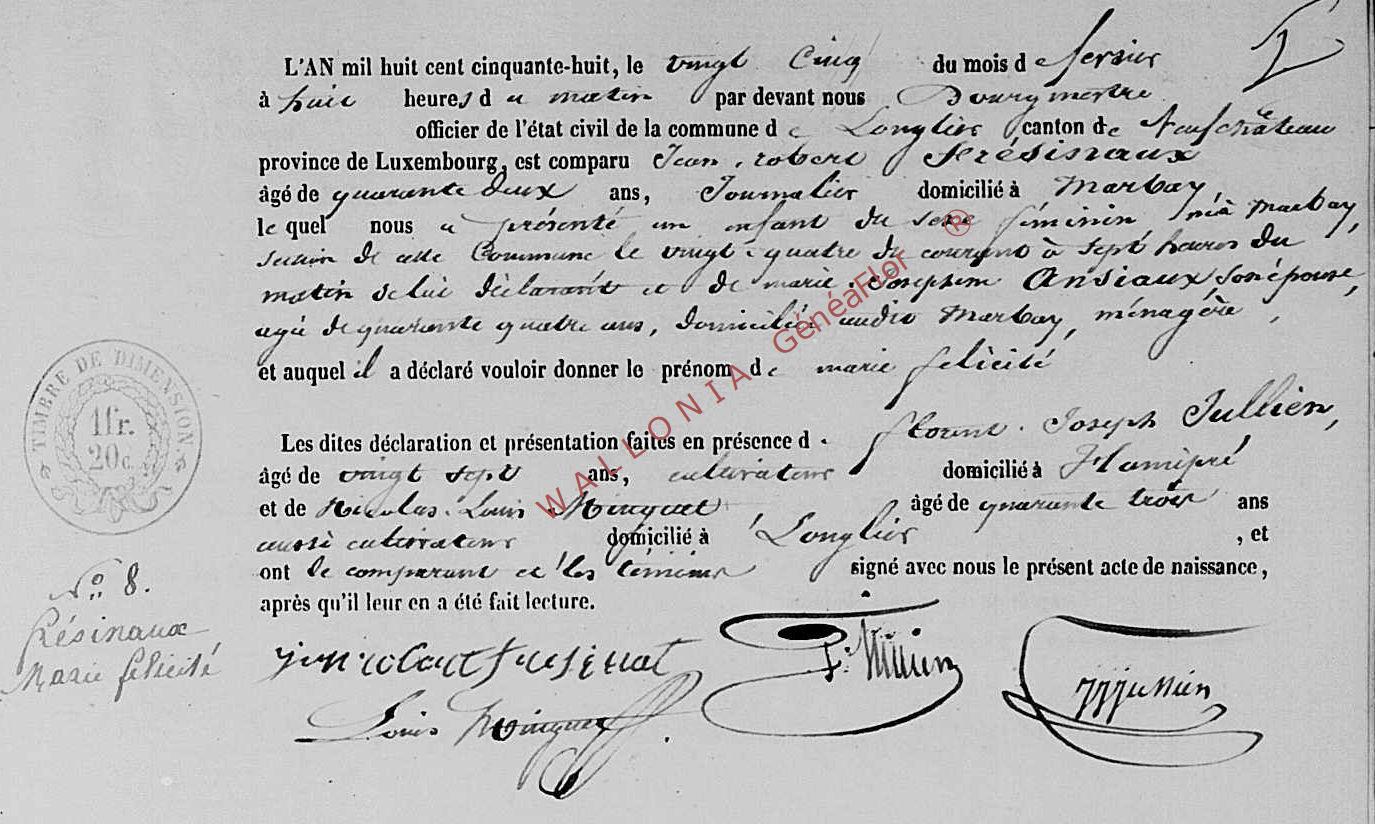 L'AN mil huit cent cinquante-huit, le vingt Cinq du mois de fevrier
à huit heures du matin par devant nous Bourgmestre
officier de l'état civil de la commune de Longlier canton de Neufchâteau
province de Luxembourg, est comparu Jean robert Frésinaux
âgé de quarante deux ans, Journalier domicilié à Marbay,
lequel nous a présenté un enfant du sexe féminin, né à Marbay,
section de cette Commune le vingt quatre du courant à sept heures du
matin de lui déclarant et de marie Josephine Ansiaux son épouse,
agée de quarante quatre ans, domiciliée audit Marbay, ménagère,
et auquel il a déclaré vouloir donner le prénom de marie felicité
Les dites déclaration et présentation faites en présence d florent Joseph Jullien,
âgé de vingt sept ans, cultivateur domicilié à Hamipré
et de Nicolas Louis Minguet âgé de quarante trois ans
aussi cultivateur domicilié à Longlier, et
ont le comparant et les témoins signé avec nous le présent acte de naissance,
après qu'il leur en a été fait lecture.
TIMBRE DE DIMENSION.
1fr.
20c.
No 8.
Résinaux
Marie felicité
Louis Minguet
WALLONIA GénéaFlor ®